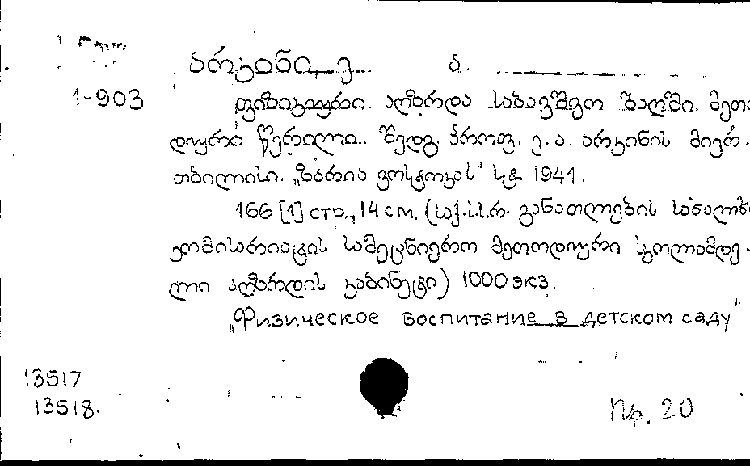 არკინი, ე. ა.
1-903 ფიზიკური აღზრდა საბავშვო ბაღში. მეთო
დიური წერილი. შედგ. პროფ. ე. ა. არკინის მიერ.
თბილისი. „ზარია ვოსტოკას" სტ. 1941.
166 [1] стр., 14 см. (საქ.ს.ს.რ. განათლების სახალხო
კომისარიატის სამეცნიერო მეთოდიური სკოლამდე-
ლი აღზრდის კაბინეტი) 1000 экз.
„Физическое воспитание в детском саду"
13517
13518.
Пр. 20